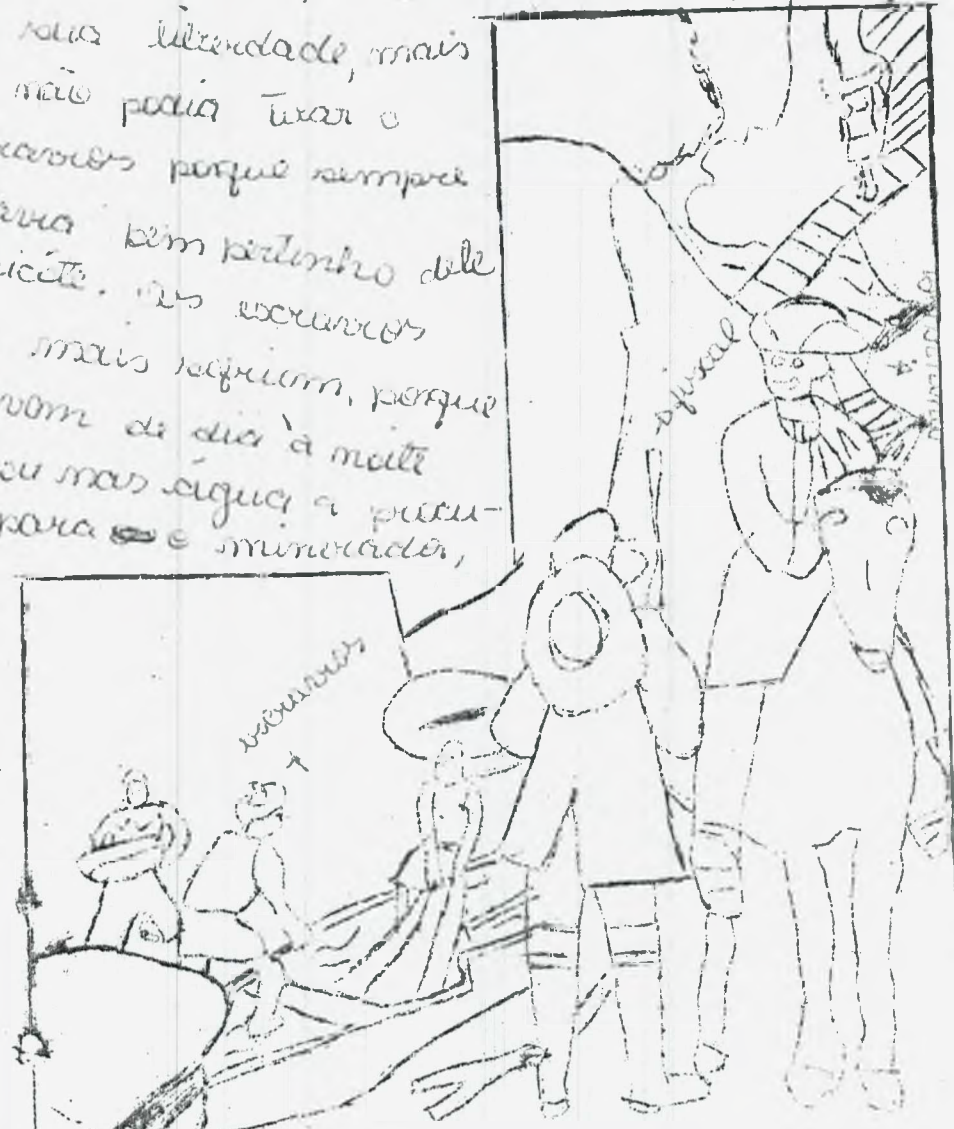 sua liberdade, mais
não podia tirar o
porque sempre
bem pertinho dele
os escravos
mais sofriam, porque
de dia à noite
ou nas água a procu-
para o minerador,
o fiscal
escravos